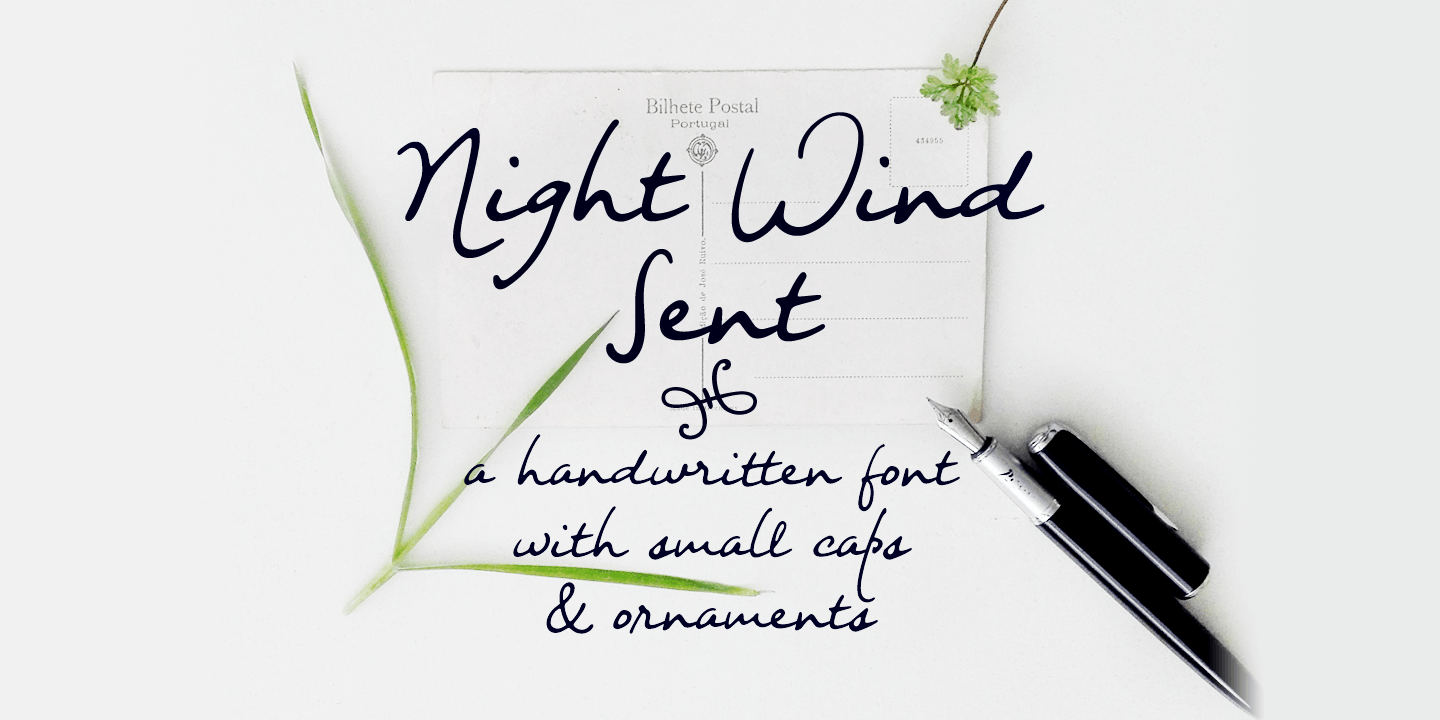 Bilhete Postal
Portugal
434955
Night Wind
Sent
a handwritten font
with small caps
& ornaments